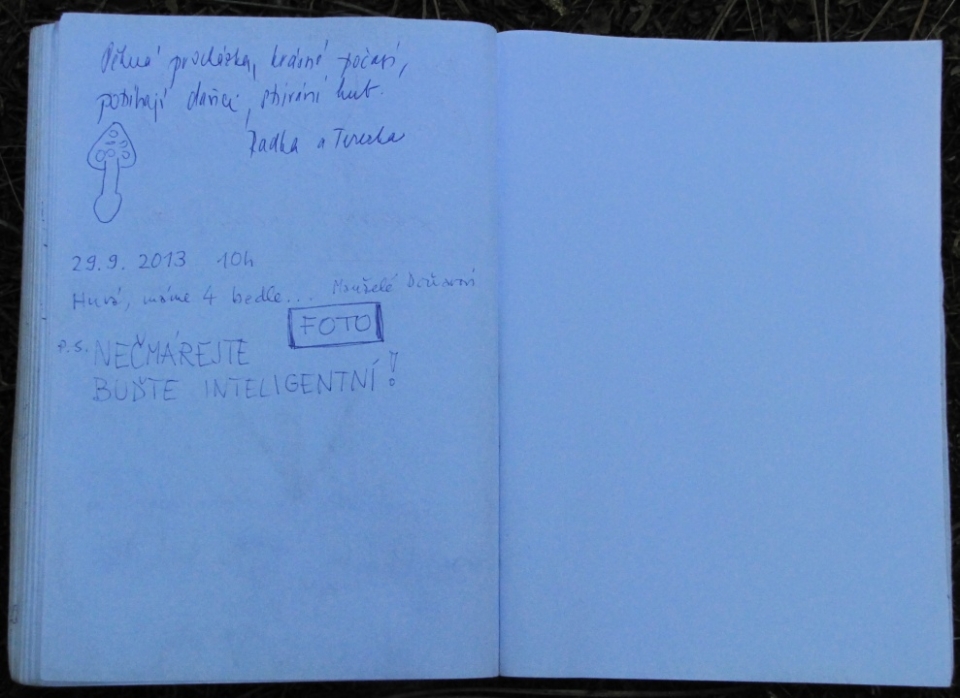 Pěkná procházka, krásné počasí,
pobíhají daňci, sbírání hub.
Radka a Terezka
29.9. 2013 10h
Hurá, máme 4 bedle... Manželé
FOTO
P.S. NEČMÁREJTE
BUĎTE INTELIGENTNÍ!